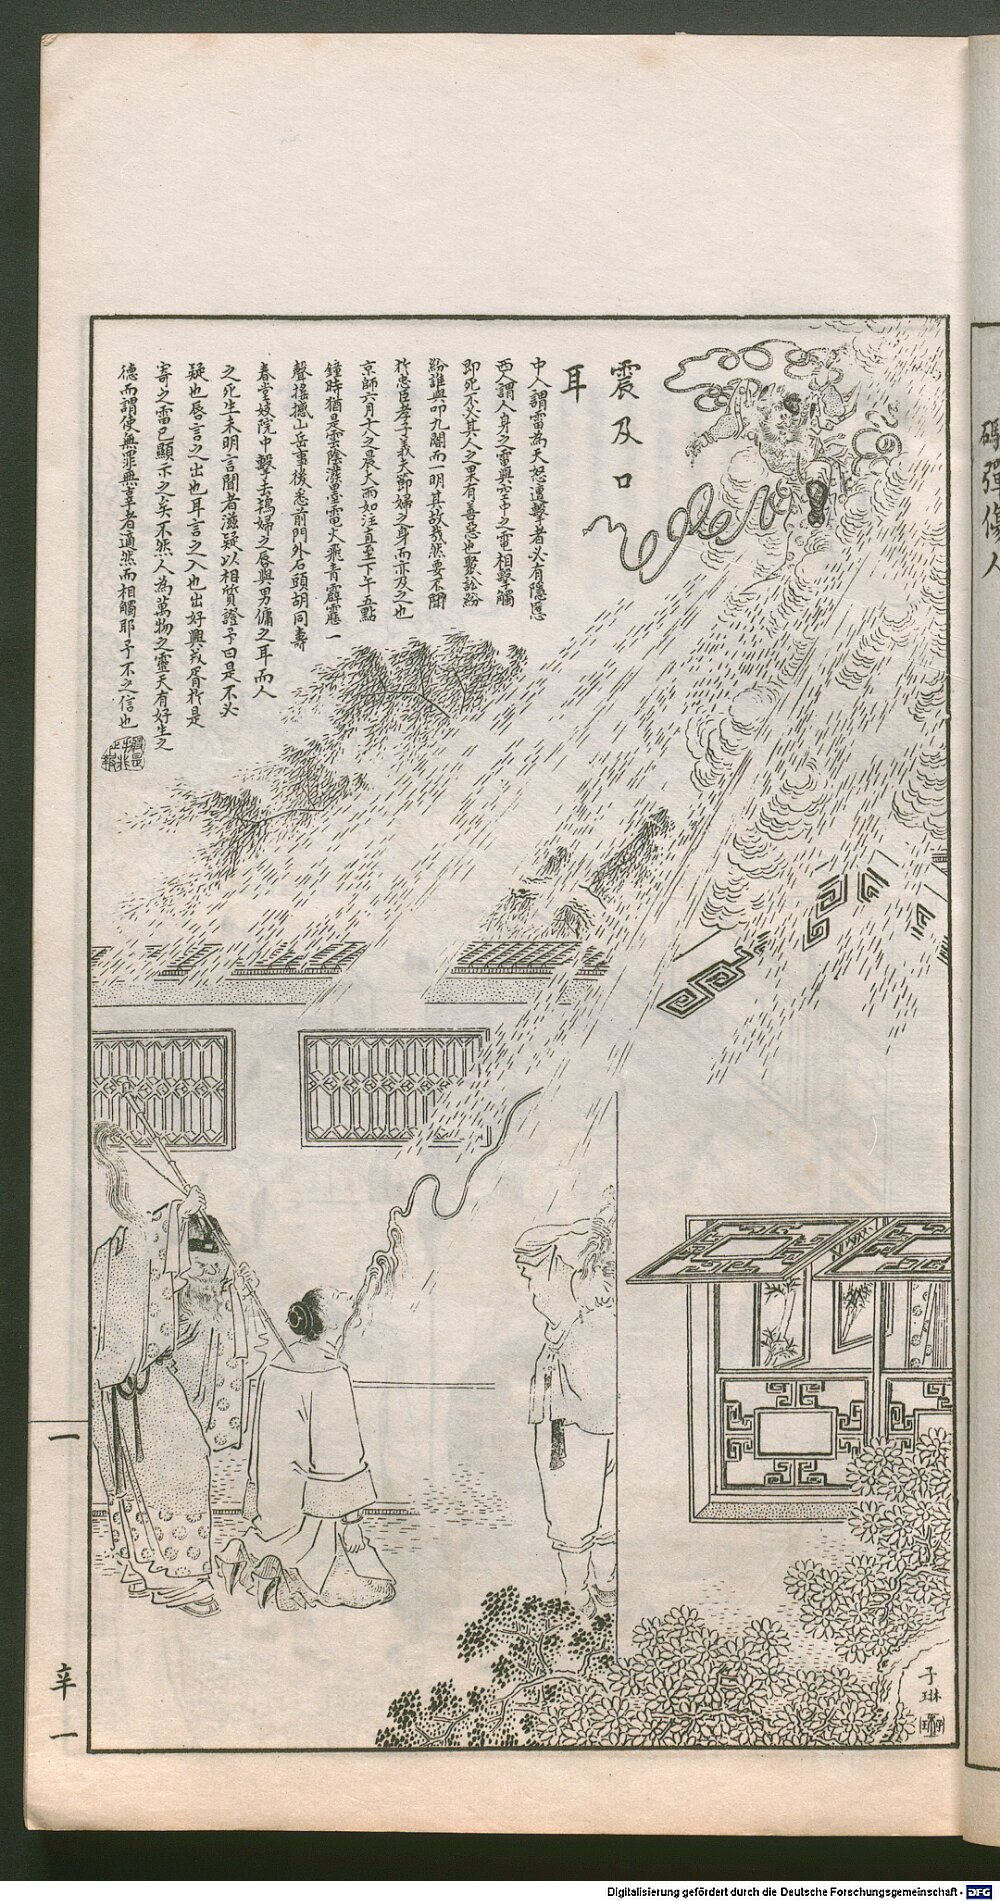 震及口
耳
中人謂雷為天怒遭擊者必有隱慝
西人謂人身之電與空中之電相擊觸
即死不必其人之果有善惡也聚訟紛
紛誰與叩九閽而一明其故哉然要不聞
於忠臣孝子義夫節婦之身而亦及之也
京師六月十八之晨大雨如注直至下午五點
鐘時猶是雲陰潑墨電火飛青霹靂一
聲搖撼山岳事後悉前門外石頭胡同壽
春堂妓院中擊去鴇婦之唇與男傭之耳而人
之死生未明言聞者滋疑以相質證予曰是不必
疑也唇言之出也耳言之入也出好興戎胥於是
寄之雷已顯示之矣不然人為萬物之靈天有好生之
德而謂使無罪無辜者適然而相觸耶予不之信也
子琳
碼彈傷人
一
辛
一
Digitalisierung gefördert durch die Deutsche Forschungsgemeinschaft - DFG